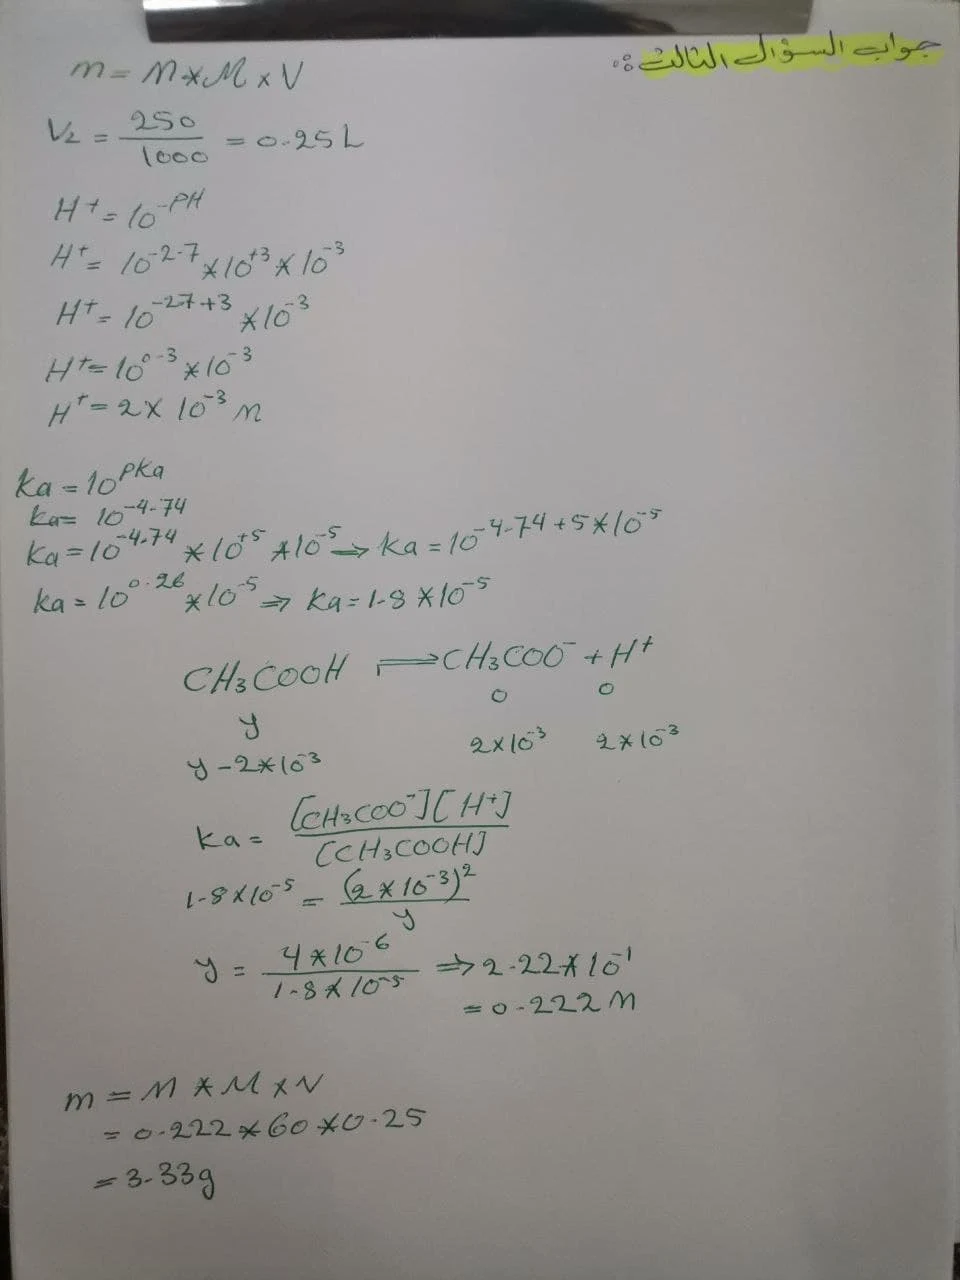 جواب السؤال الثالث:
m = M * M × V
V₂ = 250/1000 = 0.25 L
H⁺ = 10^-PH
H⁺ = 10^-2.7 * 10^+3 * 10^-3
H⁺ = 10^-27+3 * 10^-3
H⁺ = 10^0.3 * 10^-3
H⁺ = 2 × 10^-3 M
Ka = 10^PKa
Ka = 10^-4.74
Ka = 10^-4.74 * 10^+5 * 10^-5 ⇒ Ka = 10^-4.74+5 * 10^-5
Ka = 10^0.26 * 10^-5 ⇒ Ka = 1.8 * 10^-5
CH₃COOH ⇌ CH₃COO⁻ + H⁺
y 0 0
y - 2*10^-3 2×10^-3 2*10^-3
Ka = [CH₃COO⁻][H⁺]/[CH₃COOH]
1.8×10^-5 = (2*10^-3)²/y
y = 4*10^-6/1.8*10^-5 ⇒ 2.22*10^-1
= 0.222 M
m = M * M × V
= 0.222 * 60 * 0.25
= 3.33g